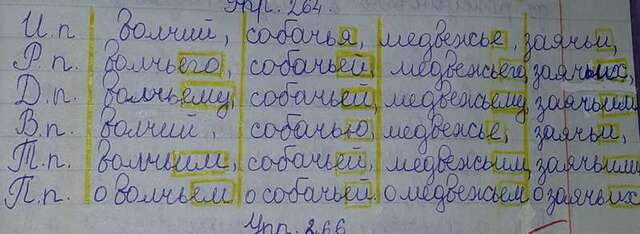 Упр. 264.
И.п волчий, собачья, медвежье, заячьи,
Р.п. волчьего, собачьей, медвежьего, заячьих,
Д.п. волчьему, собачьей, медвежьему, заячьим
В.п. волчий, собачью, медвежье, заячьи,
Т.п. волчьим, собачьей, медвежьим, заячьими
П.п. о волчьем о собачьей о медвежьем о заячьих
Упр. 266